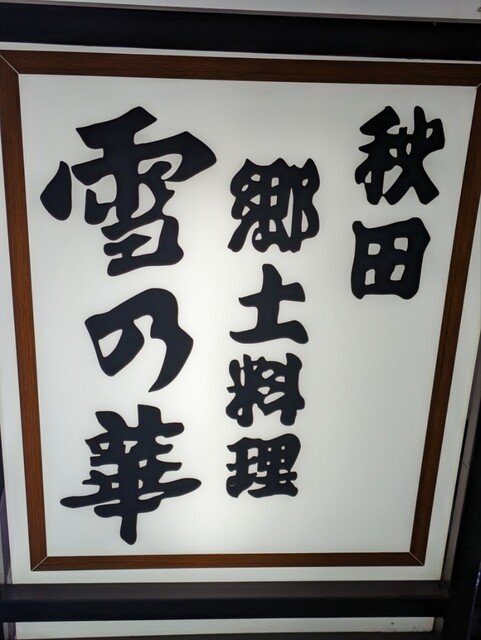 秋田
郷土料理
雪の華